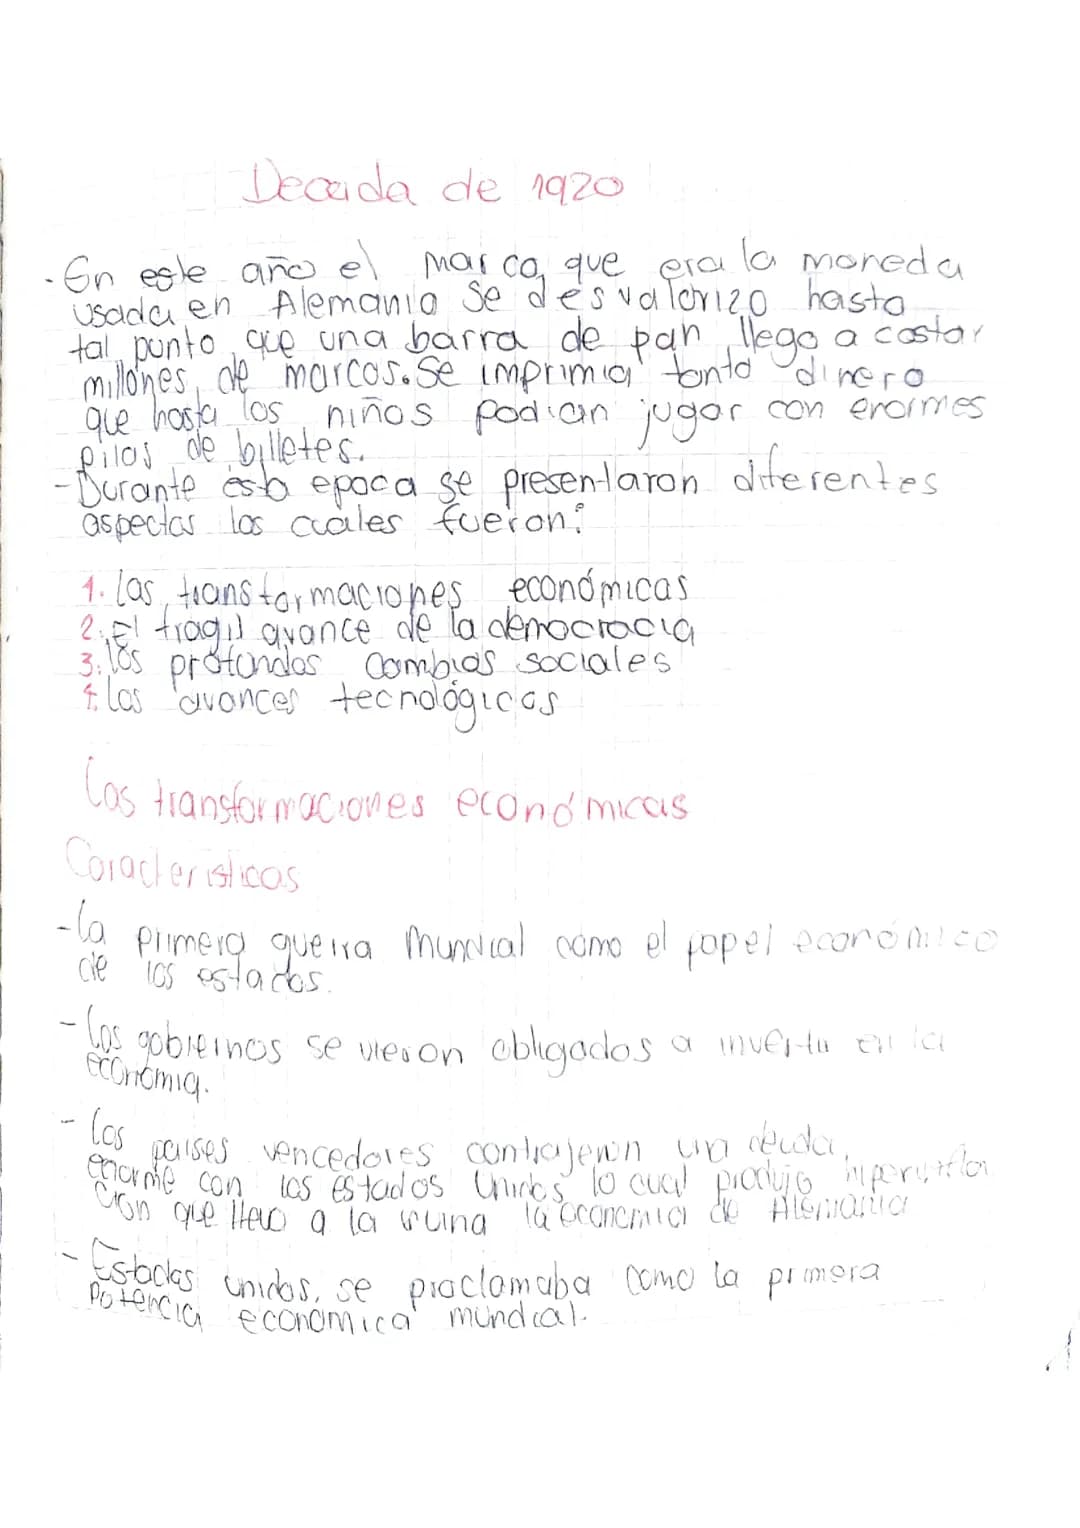 Decada de 1920
- En este año el marco, que era la moneda
usada en Alemania se desvalorizo hasta
tal punto que una barra de pan llego a costar
millones de marcos. Se imprimia tanto dinero
que hasta los niños podian jugar con enormes
pilas de billetes.
- Durante esta epoca se presentaron diferentes
aspectos los cuales fueron:
1. Las transformaciones económicas
2. El fragil avance de la democracia
3. los profundos cambios sociales
4. los avances tecnológicos
Las transformaciones económicas
Caracteristicas
- La primera guerra Mundial como el papel económico
de los estados.
- Los gobiernos se vieron obligados a invertir en la
economia.
- Los paises vencedores contrajeron una deuda,
enorme con los Estados Unidos lo cual produjo hiperinfla
cion que llevo a la ruina la economica de Alemania
- Estados unidos, se proclamaba como la primera
Potencia económica mundial.